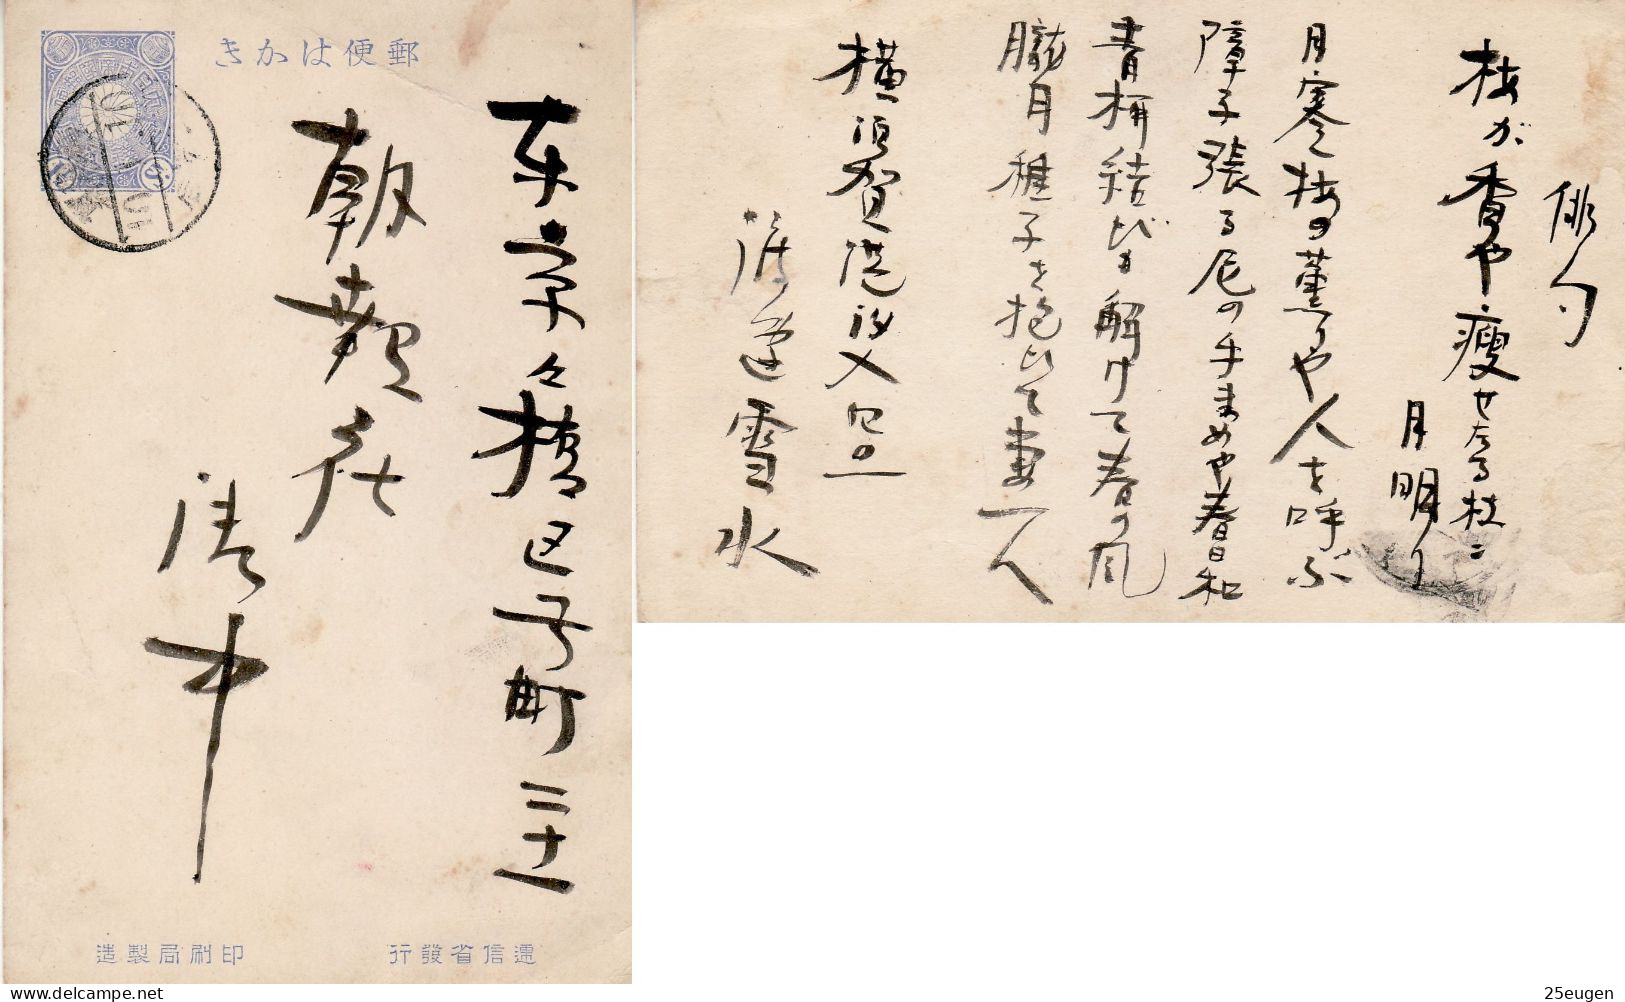 郵便はかき
東京々橋区弓町二十一
朝報社
御中
逓信省發行
印刷局製造
俳句
梅が香や痩せたる枝に
月明り
月寒く梅の薫りや人を呼ぶ
障子張る尼の手まめや春日和
青柳結びも解けて春の風
朧月椎子を抱いて妻一人
横須賀港汐入
渡辺雪水
25eugen
delcampe.net